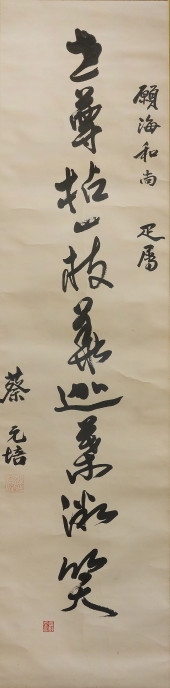 願海和尚 正屬
世尊拈一枝華迦葉微笑
蔡元培